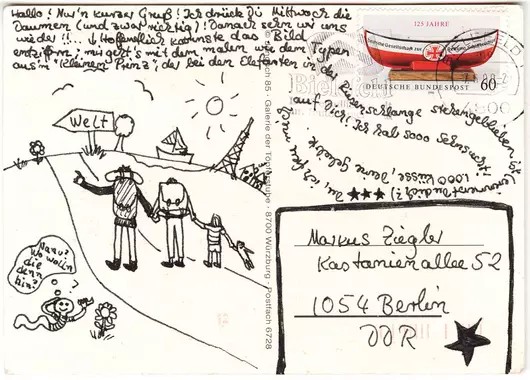 Hallo! Nur'n kurzer Gruß! Ich drücke Dir Mittwoch die
Daumen (und zwar richtig)! Danach sehn wir uns
wieder!! ↓ Hoffentlich kannste das Bild
entziffern; mir geht's mit dem malen wie dem Typen
aus'm "Kleinen Prinz", der bei den Elefanten in der
Riesenschlange steckengeblieben ist
(erinnerst Du Dich?)
ich freu mich
auf Dich! Ich hab 5000 Sehnsucht!
1.000 Küsse, Deine
125 JAHRE
Deutsche Gesellschaft zur Rettung Schiffbrüchiger
DEUTSCHE BUNDESPOST 60
Welt
Nanu?
Wo wolln
die
denn
hin?
?
fach 85 · Galerie der Töpferstube · 8700 Würzburg · Postfach 6728
Markus Ziegler
Kastanienallee 52
1054 Berlin
DDR